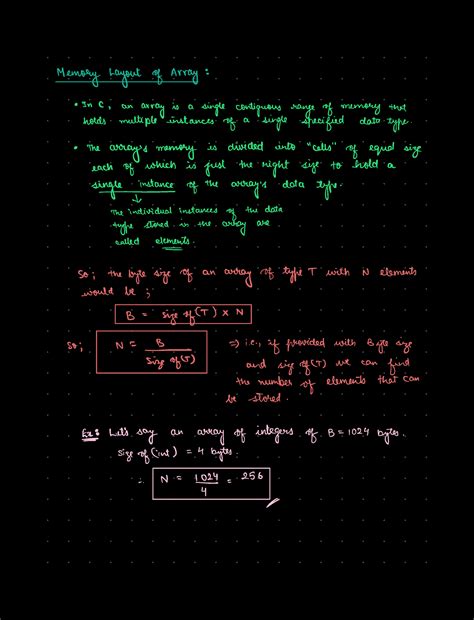 Memory Layout of Array :
• In C, an array is a single contiguous range of memory that
holds multiple instances of a single specified data type.
• The array's memory is divided into "cells" of equal size
each of which is just the right size to hold a
single instance of the array's data type.
↓
The individual instances of the data
type stored in the array are
called elements.
So; the byte size of an array of type T with N elements
would be ;
B = Size of (T) × N
So; N = B / Size of (T) ⇒ i.e., if provided with Byte size
and size of (T) we can find
the number of elements that can
be stored.
Ex: Let's say an array of integers of B = 1024 bytes.
Size of (int) = 4 bytes.
∴ N = 1024 / 4 = 256